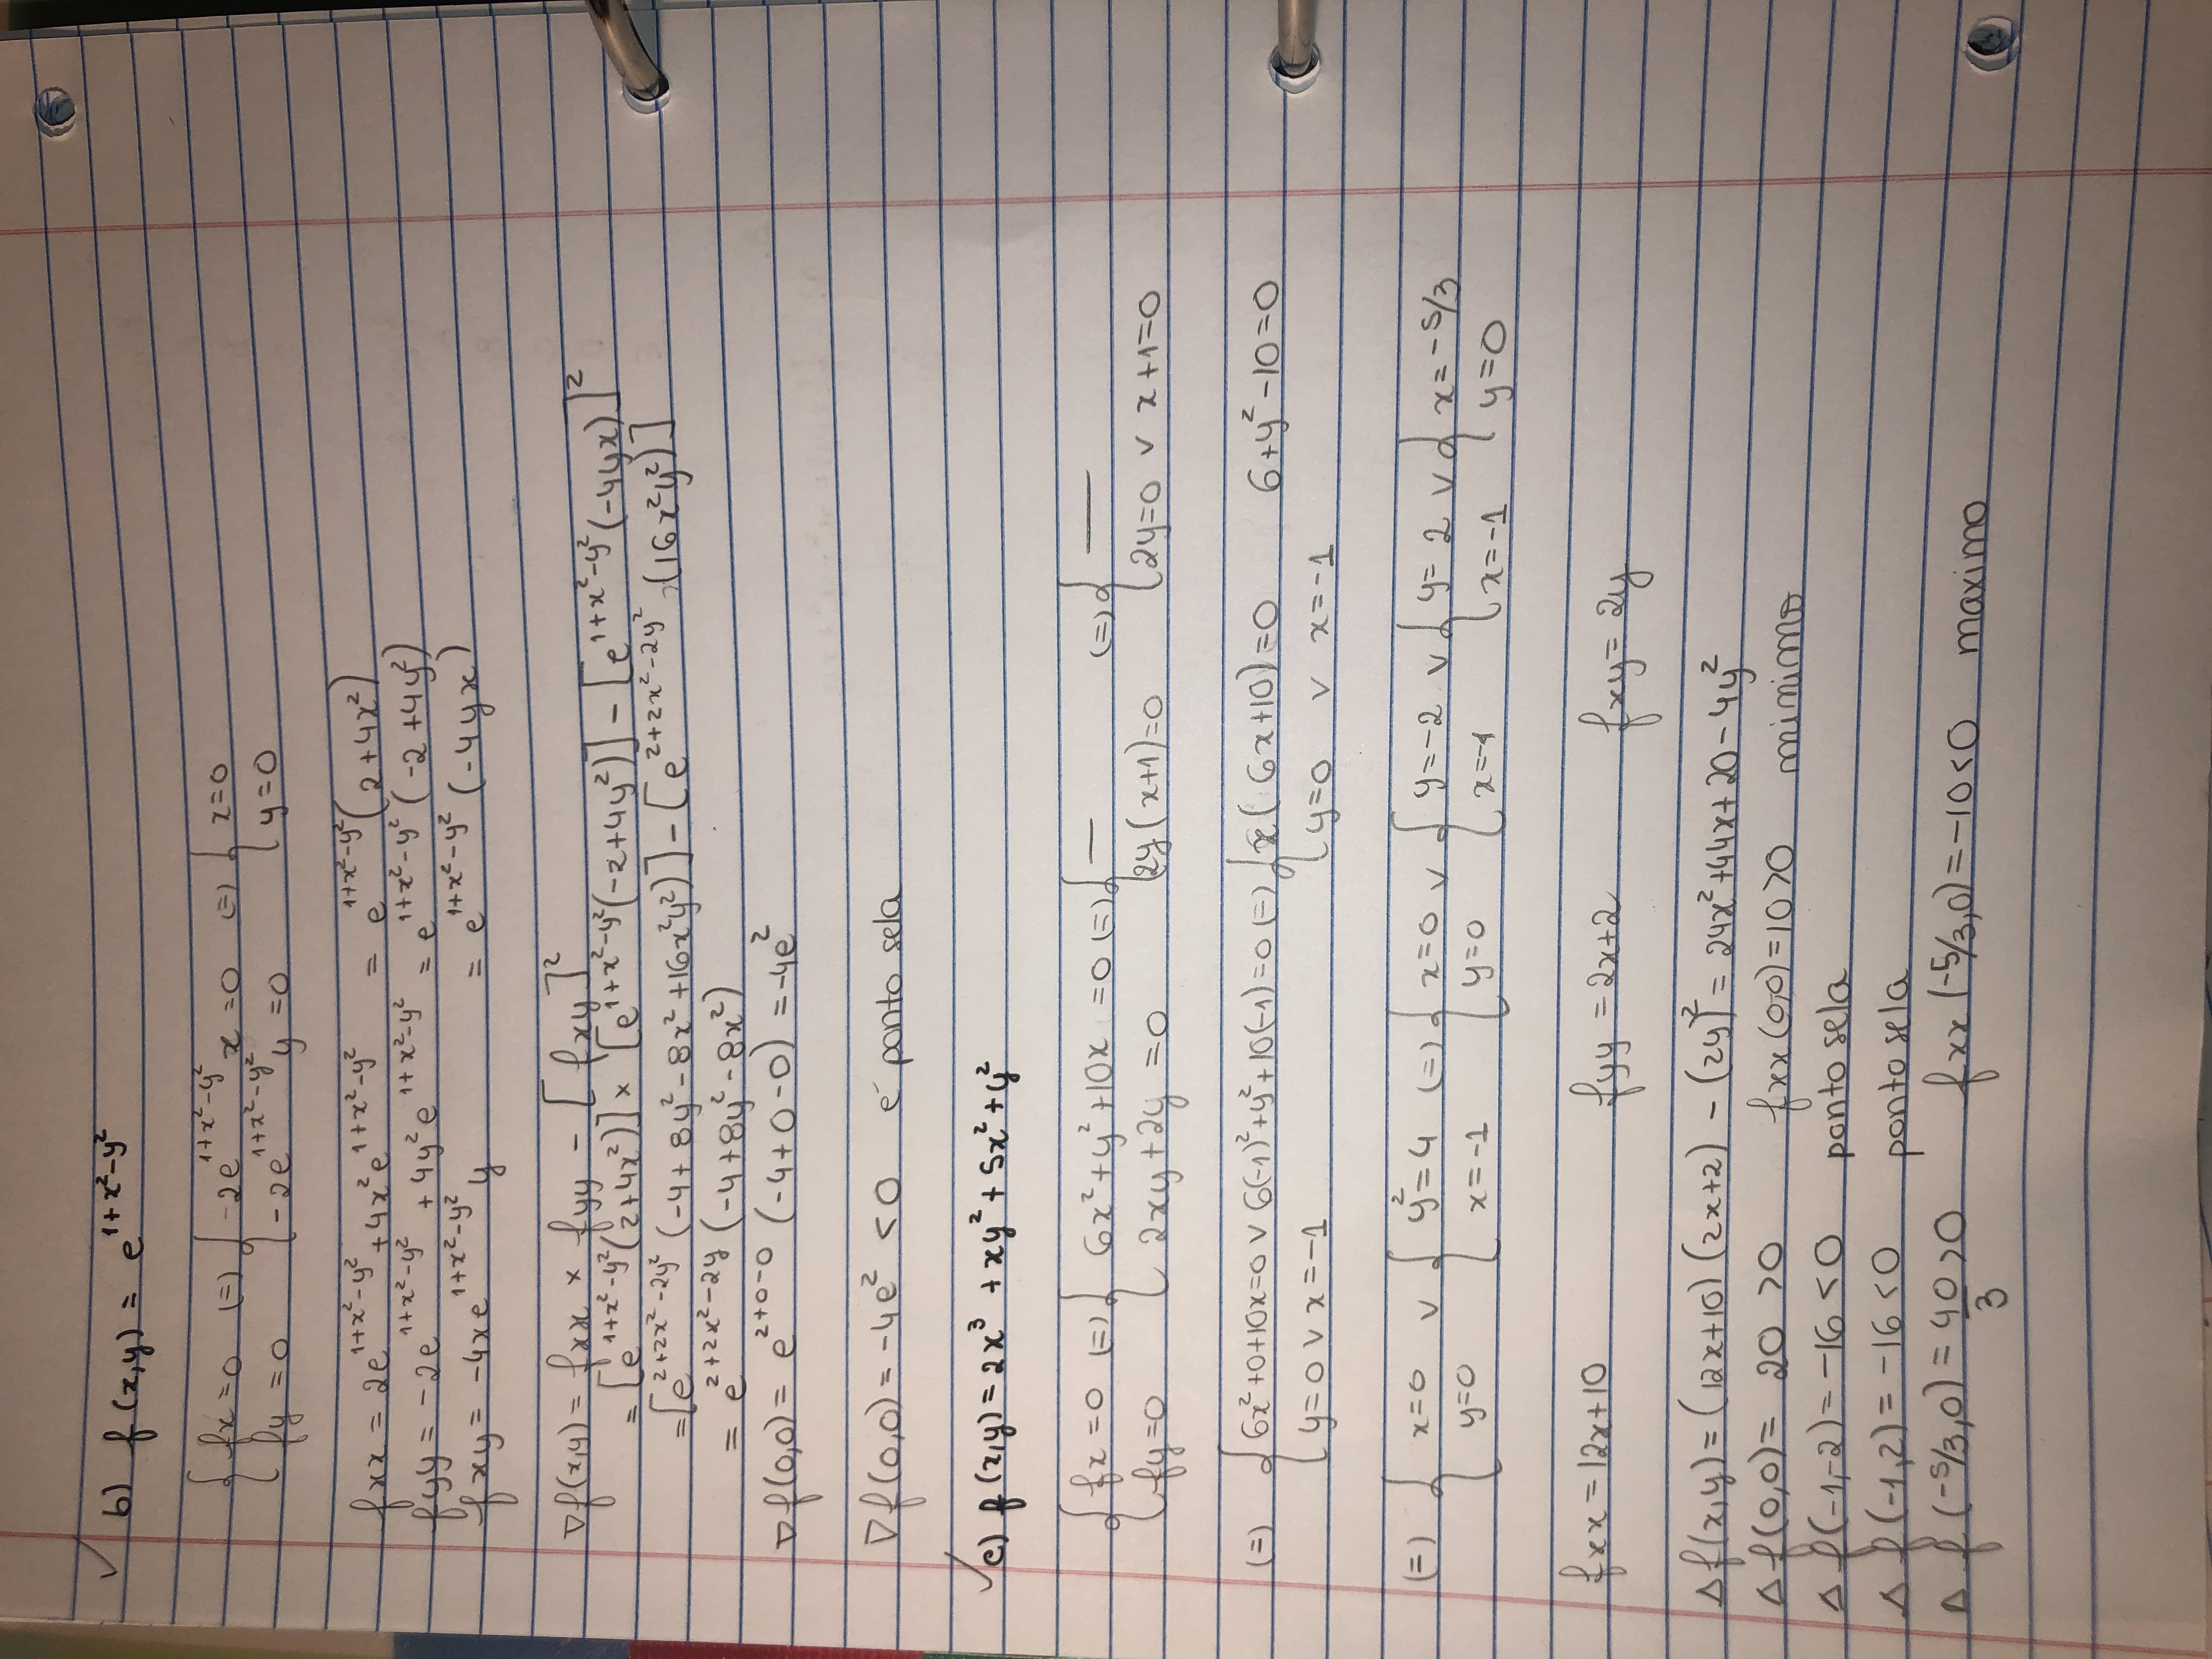 ✓ b) f(x,y) = e^{1+x²-y²}
{ fx=0 (=) { -2e^{1+x²-y²} x = 0 (=) { x=0
fy=0 -2e^{1+x²-y²} y = 0 y=0
fxx = 2e^{1+x²-y²} + 4x²e^{1+x²-y²} = e^{1+x²-y²} (2+4x²)
fyy = -2e^{1+x²-y²} + 4y²e^{1+x²-y²} = e^{1+x²-y²} (-2+4y²)
fxy = -4xe^{1+x²-y²} y = e^{1+x²-y²} (-4yx)
∇f(x,y) = fxx × fyy - [fxy]²
= [e^{1+x²-y²}(2+4x²)] × [e^{1+x²-y²}(-2+4y²)] - [e^{1+x²-y²}(-4yx)]²
= [e^{2+2x²-2y²} (-4+8y²-8x²+16x²y²)] - [e^{2+2x²-2y²} (16x²y²)]
= e^{2+2x²-2y} (-4+8y²-8x²)
∇f(0,0) = e^{2+0-0} (-4+0-0) = -4e²
∇f(0,0) = -4e² < 0 é ponto sela
✓ c) f(x,y) = 2x³ + xy² + 5x² + y²
{ fx=0 (=) { 6x²+y²+10x = 0 (=) { — (=) { —
fy=0 2xy+2y = 0 2y(x+1)=0 2y=0 ∨ x+1=0
(=) { 6x²+0+10x=0 ∨ 6(-1)²+y²+10(-1)=0 (=) { x(6x+10)=0 6+y²-10=0
y=0 ∨ x=-1 y=0 ∨ x=-1
(=) { x=0 ∨ { y²=4 (=) { x=0 ∨ { y=-2 ∨ { y=2 ∨ { x=-5/3
y=0 x=-1 y=0 x=-1 x=-1 y=0
fxx = 12x+10 fyy = 2x+2 fxy = 2y
Δf(x,y) = (12x+10)(2x+2) - (2y)² = 24x²+44x+20-4y²
Δf(0,0) = 20 >0 fxx(0,0)=10>0 minimo
Δf(-1,-2) = -16 <0 ponto sela
Δf(-1,2) = -16 <0 ponto sela
Δf(-5/3,0) = 40/3 >0 fxx(-5/3,0) = -10<0 maximo